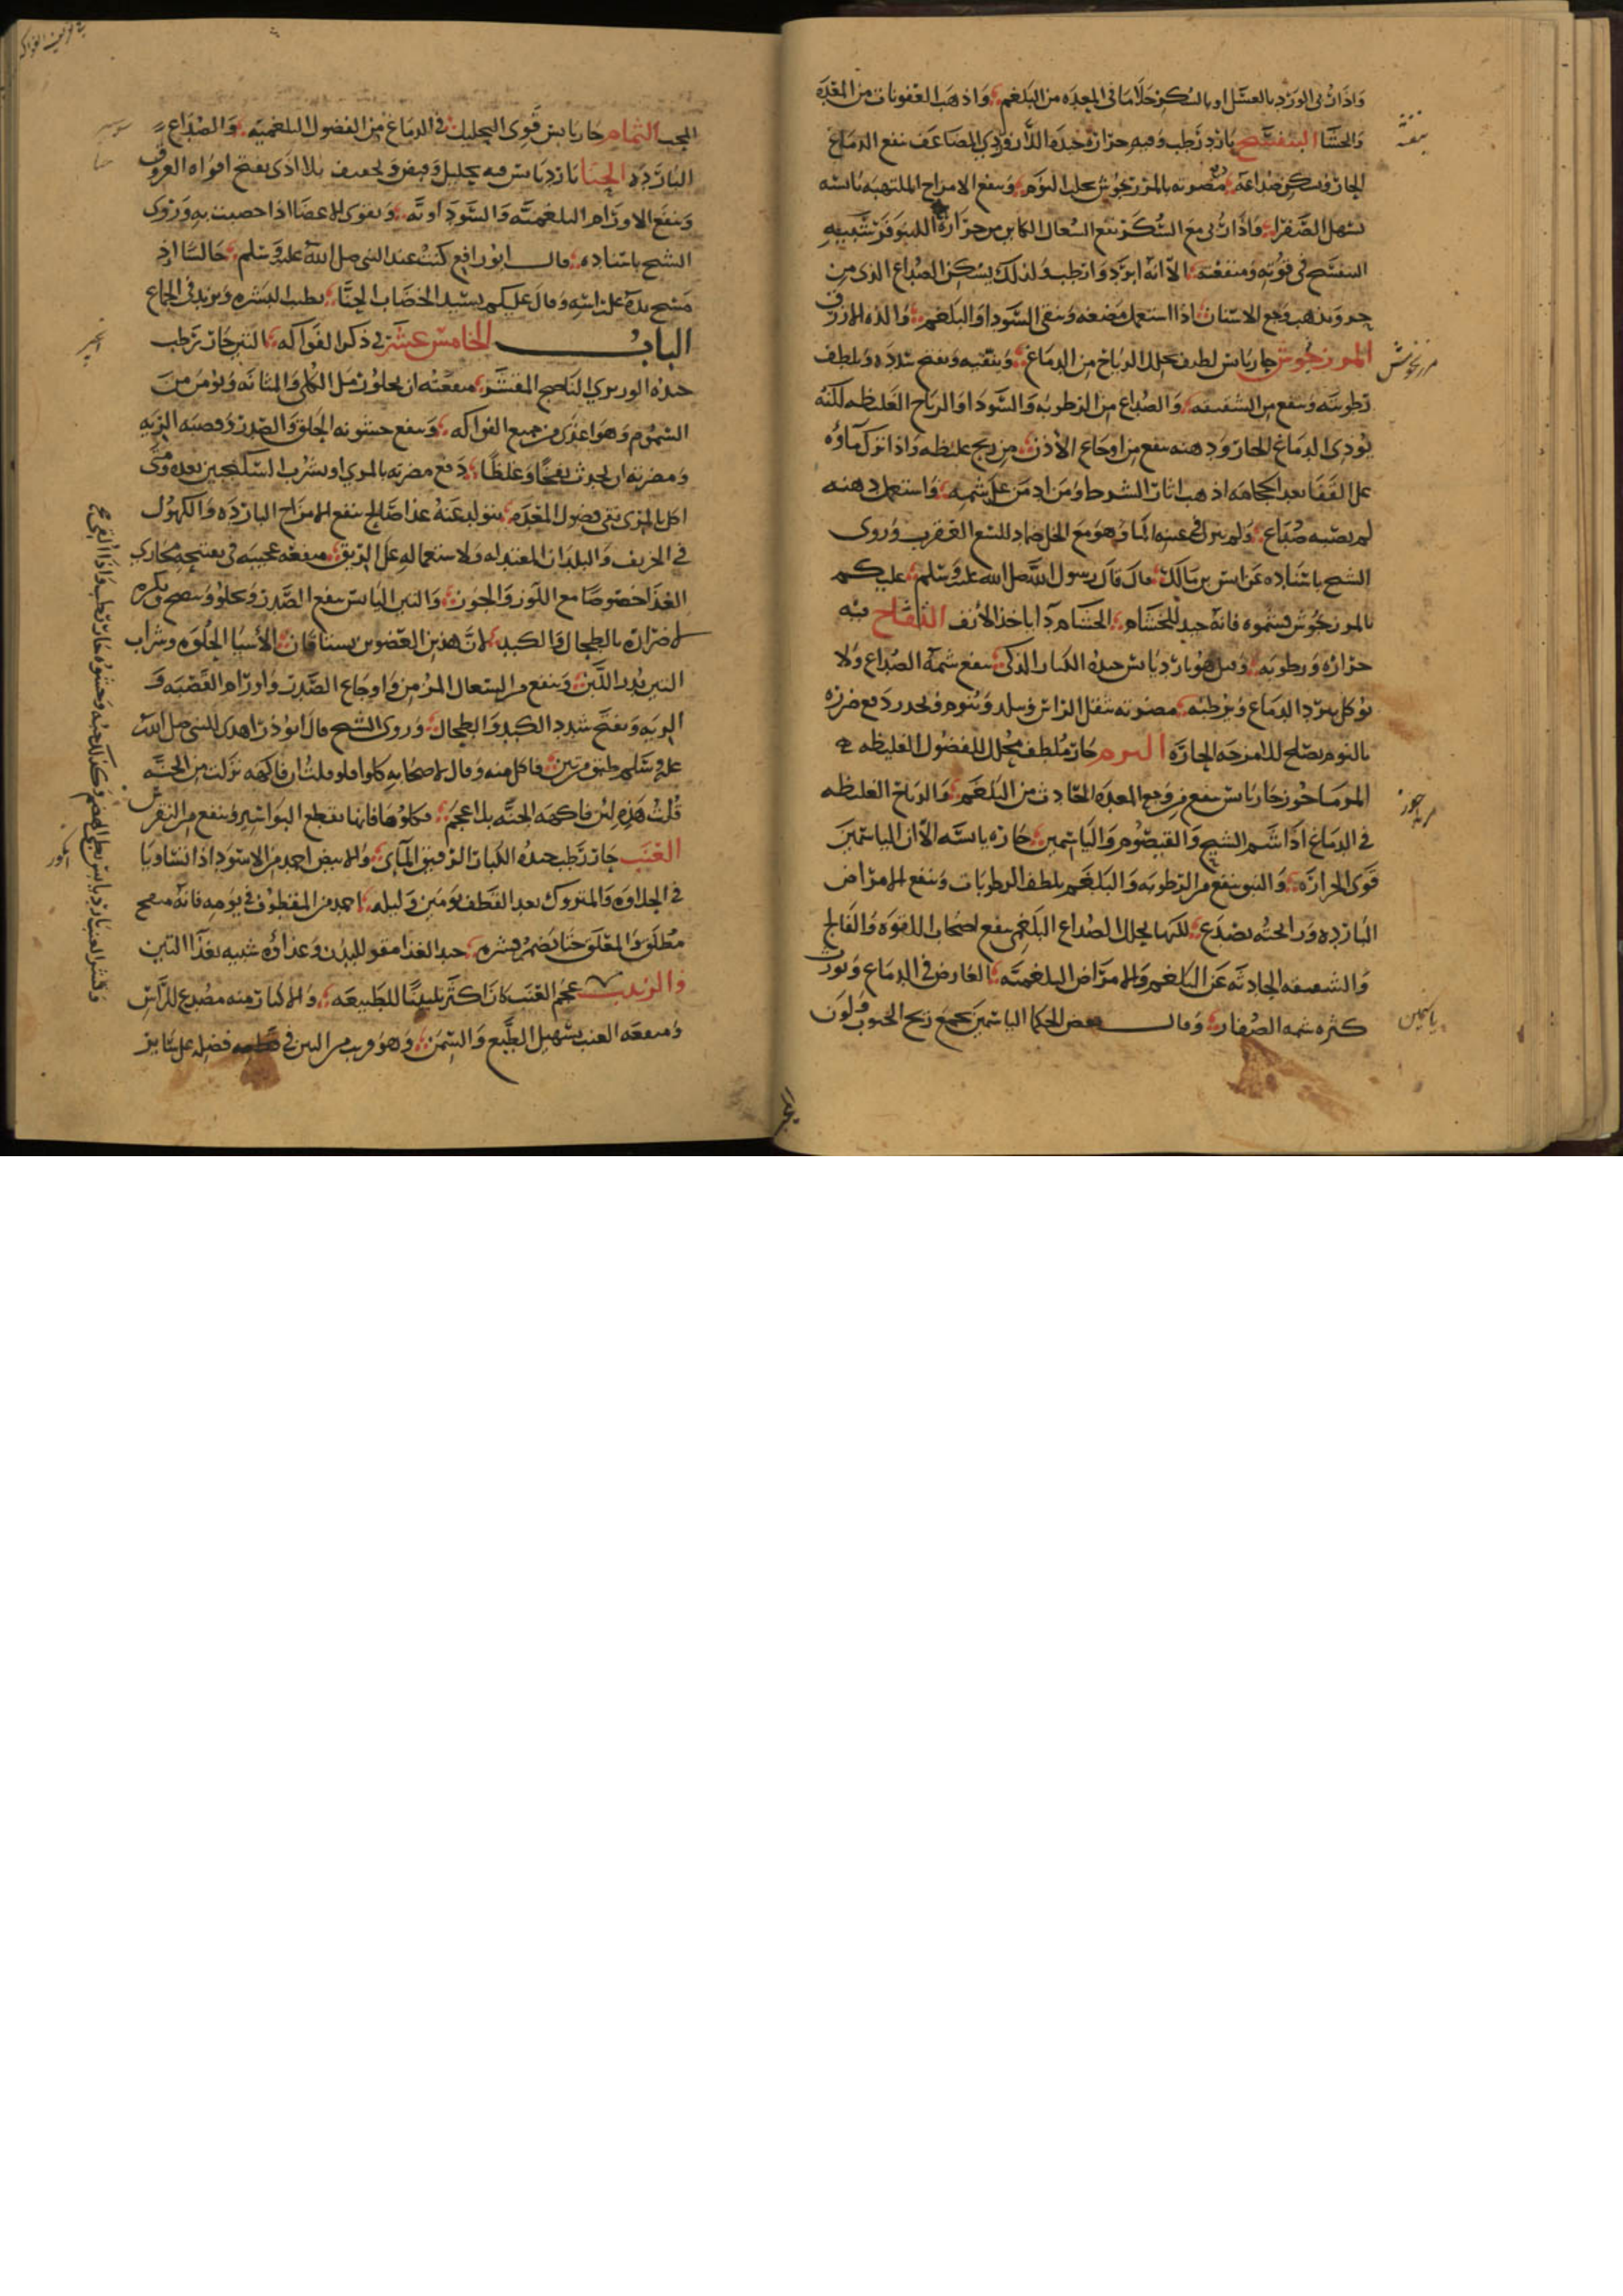 واذا ربي الورد بالعسل او بالسكر جلا ما في المعدة من البلغم واذهب العفونات من المعدة
والحشا البنفسج بارد رطب وفيه حرارة
الحار وتسكن صداعه مضرته بالمرزنجوش يجلب النوم وينفع الامزاج الملتهبة يابسه
يسهل الصفرا واذا ربي مع السكر نفع السعال الكاين من حرارة اللينوفر شبيه
البنفسج في قوته ومنفعته الا انه ابرد وارطب ولذلك يسكن الصداع الذي من
حر ويذهب وجع الاسنان اذا استعمل مضغه وينقي السودا والبلغم والذه الازرق
المرزنجوش حار يابس لطيف يحلل الرياح من الدماغ وينقيه ويفتح سدده ويلطف
رطوبته وينفع من الشقيقه والصداع من الرطوبه والسودا والرياح الغليظه لكنه
يوذي الدماغ الحار ودهنه ينفع من اوجاع الاذن من ريح غليظه واذا ترك ماؤه
على القفا بعد الحجامه اذهب اثار الشرط ومن ادمن على شمه واستعمل دهنه
لم يصبه صداع ولم ينزل في عينيه الما وهو مع الخل ضماد للسع العقرب وروى
الشيخ باسناده عن انس بن مالك قال قال رسول الله صلى الله عليه وسلم عليكم
بالمرزنجوش فشموه فانه جيد للخشام الخشام دا ياخذ الانف التفاح فيه
حراره ورطوبه وقيل هو بارد يابس جيده الكبار الذكي ينفع شمه الصداع ولا
يوكل يبرد الدماغ ويرطبه مضرته يثقل الراس وينوم ويخدر دفع ضرره
بالنوم يصلح للامزجه الحارة حار ملطف محلل للفضول الغليظه
المرماحوز حار يابس ينفع من وجع المعده الحادث من البلغم والرياح الغليظه
في الدماغ اذا اشتم الشيح والقيصوم والياسمين حاره يابسه الا ان الياسمين
قوى الحرارة ينفع من الرطوبه والبلغم يلطف الرطوبات وينفع الامراض
البارده ورائحته تصدع لكنها يحلل الصداع البلغمي ينفع اصحاب اللقوه والفالج
والشقيقه الحادثه عن البلغم والامراض البلغميه العارض في الدماغ ويورث
كثرة شمه الصفار وقال بعض الحكما الياسمين
بنفشه
مرزنجوش
ياسمين
النمام حار يابس قوي التحليل في الدماغ من الفضول البلغميه والصداع
البارد الحنا بارد يابس فيه تحليل وقبض وتجفيف بلا اذى يفتح افواه العروق
وينفع الاورام البلغميه والسوداويه ويقوي الاعضا اذا خضبت به وروى
الشيخ باسناده قال ابو رافع كنت عند النبي صلى الله عليه وسلم جالسا اذ
مسح يده على راسه وقال عليكم بسيد الخضاب الحنا يطيب البشره ويزيد في الجماع
الباب الخامس عشر في ذكر الفواكه التين حار رطب
جيده الناضج المقشر منفعته ان يجلو رمل الكلى والمثانه ويومن من
السموم وهو اغذى من جميع الفواكه وينفع خشونه الحلق والصدر وقصبه الريه
ومضرته ان يحدث نفخا وغلظا دفع مضرته بالمري او بشرب السكنجبين بعده ومتى
اكل بالمري نقى فضول المعده يتولد عنه غذا صالح ينفع الامزاج البارده والكهول
في الخريف والبلدان المعتدله ولاستعماله على الريق منفعه عجيبه في تفتيح مجاري
الغذا خصوصا مع اللوز والجوز والتين اليابس ينفع الصدر ويجلو وينضج ويكره
لاضراره بالطحال والكبد لان هذين العضوين يستاقان الاشيا الحلوه وشراب
التين يدر اللبن وينفع من السعال المزمن واوجاع الصدر واورام القصبه و
الريه ويفتح سدد الكبد والطحال وروى الشيخ قال ابو ذر اهدي للنبي صلى الله
عليه وسلم طبق من تين فاكل منه وقال لاصحابه كلوا فلو قلت ان فاكهه نزلت من الجنه
قلت هذه لان فاكهه الجنه بلا عجم فكلوها فانها تقطع البواسير وينفع من النقرس
العنب حار رطب جيده الكبار الرقيق المائي والابيض احمد من الاسود اذا تساويا
في الحلاوه والمتروك بعد القطف يومين وليله احمد من المقطوف في يومه فانه منفخ
مطلق والمعلق حتى يضمر قشره جيد الغذا مقو للبدن وغذاؤه شبيه بغذا التين
والزبيب عجم العنب كان اكثر تليينا للطبيعه والاكثار منه مصدع للراس
ومنفعه العنب يسهل الطبع والسمن وهو قريب من التين في فضله على ساير
وقشر العنب بارد يابس بطي الهضم وكذلك حبه وحشوه حار رطب واذا القي